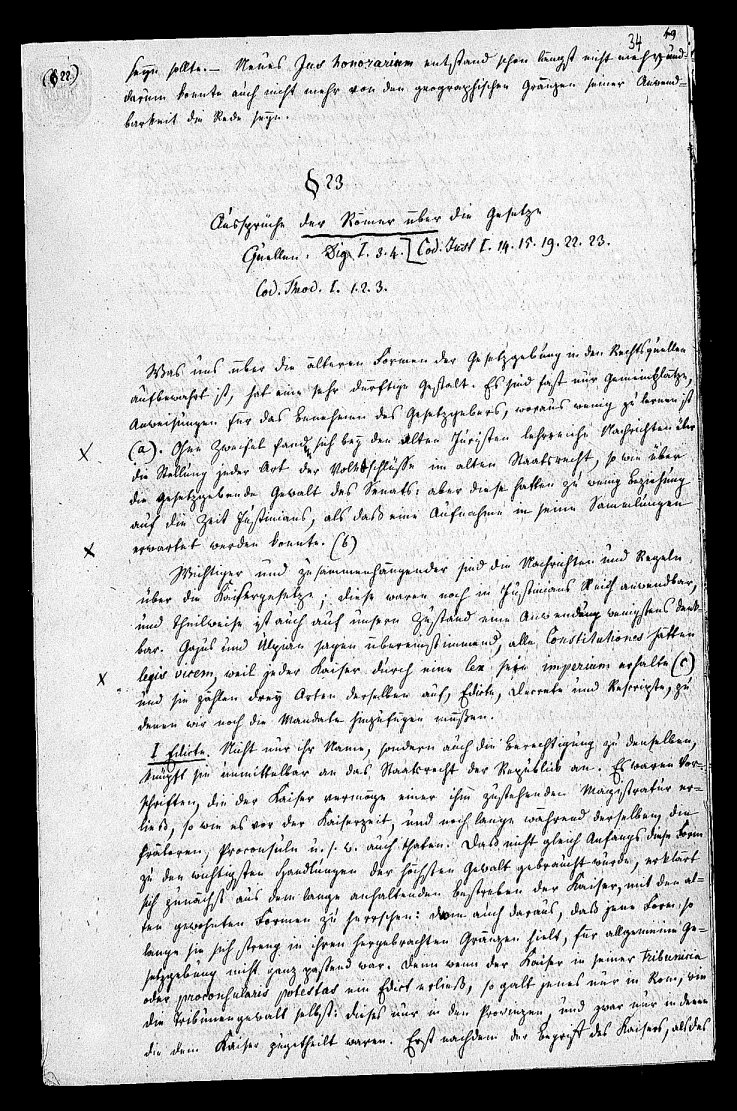 34 49
(§ 22.)
seyn sollte. — Neues Jus honorarium entstand schon längst nicht mehr, und
darum konnte auch nicht mehr von den geographischen Gränzen seiner Anwend=
barkeit die Rede seyn.
§ 23
Aussprüche der Römer über die Gesetze
Quellen: Dig. I. 3. 4. Cod. Just I. 14. 15. 19. 22. 23.
Cod. Theod. I. 1. 2. 3.
Was uns über die älteren Formen der Gesetzgebung in den Rechtsquellen
aufbewahrt ist, hat eine sehr dürftige Gestalt. Es sind fast nur Gemeinplätze,
Anweisungen für das Benehmen des Gesetzgebers, woraus wenig zu lernen ist
(a). Ohne Zweifel fand sich bey den alten Juristen lehrreiche Nachrichten über
die Stellung jeder Art der Volksschlüsse im alten Staatsrecht, so wie über
die gesetzgebende Gewalt des Senats: aber diese hatten zu wenig Beziehung
auf die Zeit Justinians, als daß eine Aufnahme in seine Sammlungen
erwartet werden konnte. (b)
Wichtiger und zusammenhängender sind die Nachrichten und Regeln
über die Kaisergesetze; diese waren noch in Justinians Reich anwendbar,
und theilweise ist auch auf unsern Zustand eine Anwendung wenigstens denk=
bar. Gajus und Ulpian sagen übereinstimmend, alle Constitutionen hätten
legis vicem, weil jeder Kaiser durch eine lex sein imperium erhalte (c)
und sie zählen drey Arten derselben auf, Edicte, Decrete und Rescripte, zu
denen wir noch die Mandate hinzufügen müssen.
I Edicte. Nicht nur ihr Name, sondern auch die Berechtigung zu denselben,
knüpft sie unmittelbar an das Staatsrecht der Republik an. Es waren Vor=
schriften, die der Kaiser vermöge einer ihm zustehenden Magistratur er=
ließ, so wie es vor der Kaiserzeit, und noch lange während derselben, die
Prätoren, Proconsuln u. s. w. auch thaten. Daß nicht gleich Anfangs diese Form
zu den wichtigsten Handlungen der höchsten Gewalt gebraucht wurde, erklärt
sich zunächst aus dem lange anhaltenden Bestreben der Kaiser, mit den al=
ten gewohnten Formen zu herrschen: dann auch daraus, daß jene Form, so
lange sie sich streng in ihren hergebrachten Gränzen hielt, für allgemeine Ge=
setzgebung nicht ganz passend war. Denn wenn der Kaiser in seiner tribunicia
oder proconsularis potestas ein Edict erließ, so galt jenes nur in Rom, wie
die Tribunengewalt selbst: dieses nur in den Provinzen, und zwar nur in denen
die dem Kaiser zugetheilt waren. Erst nachdem der Begriff des Kaisers, als des